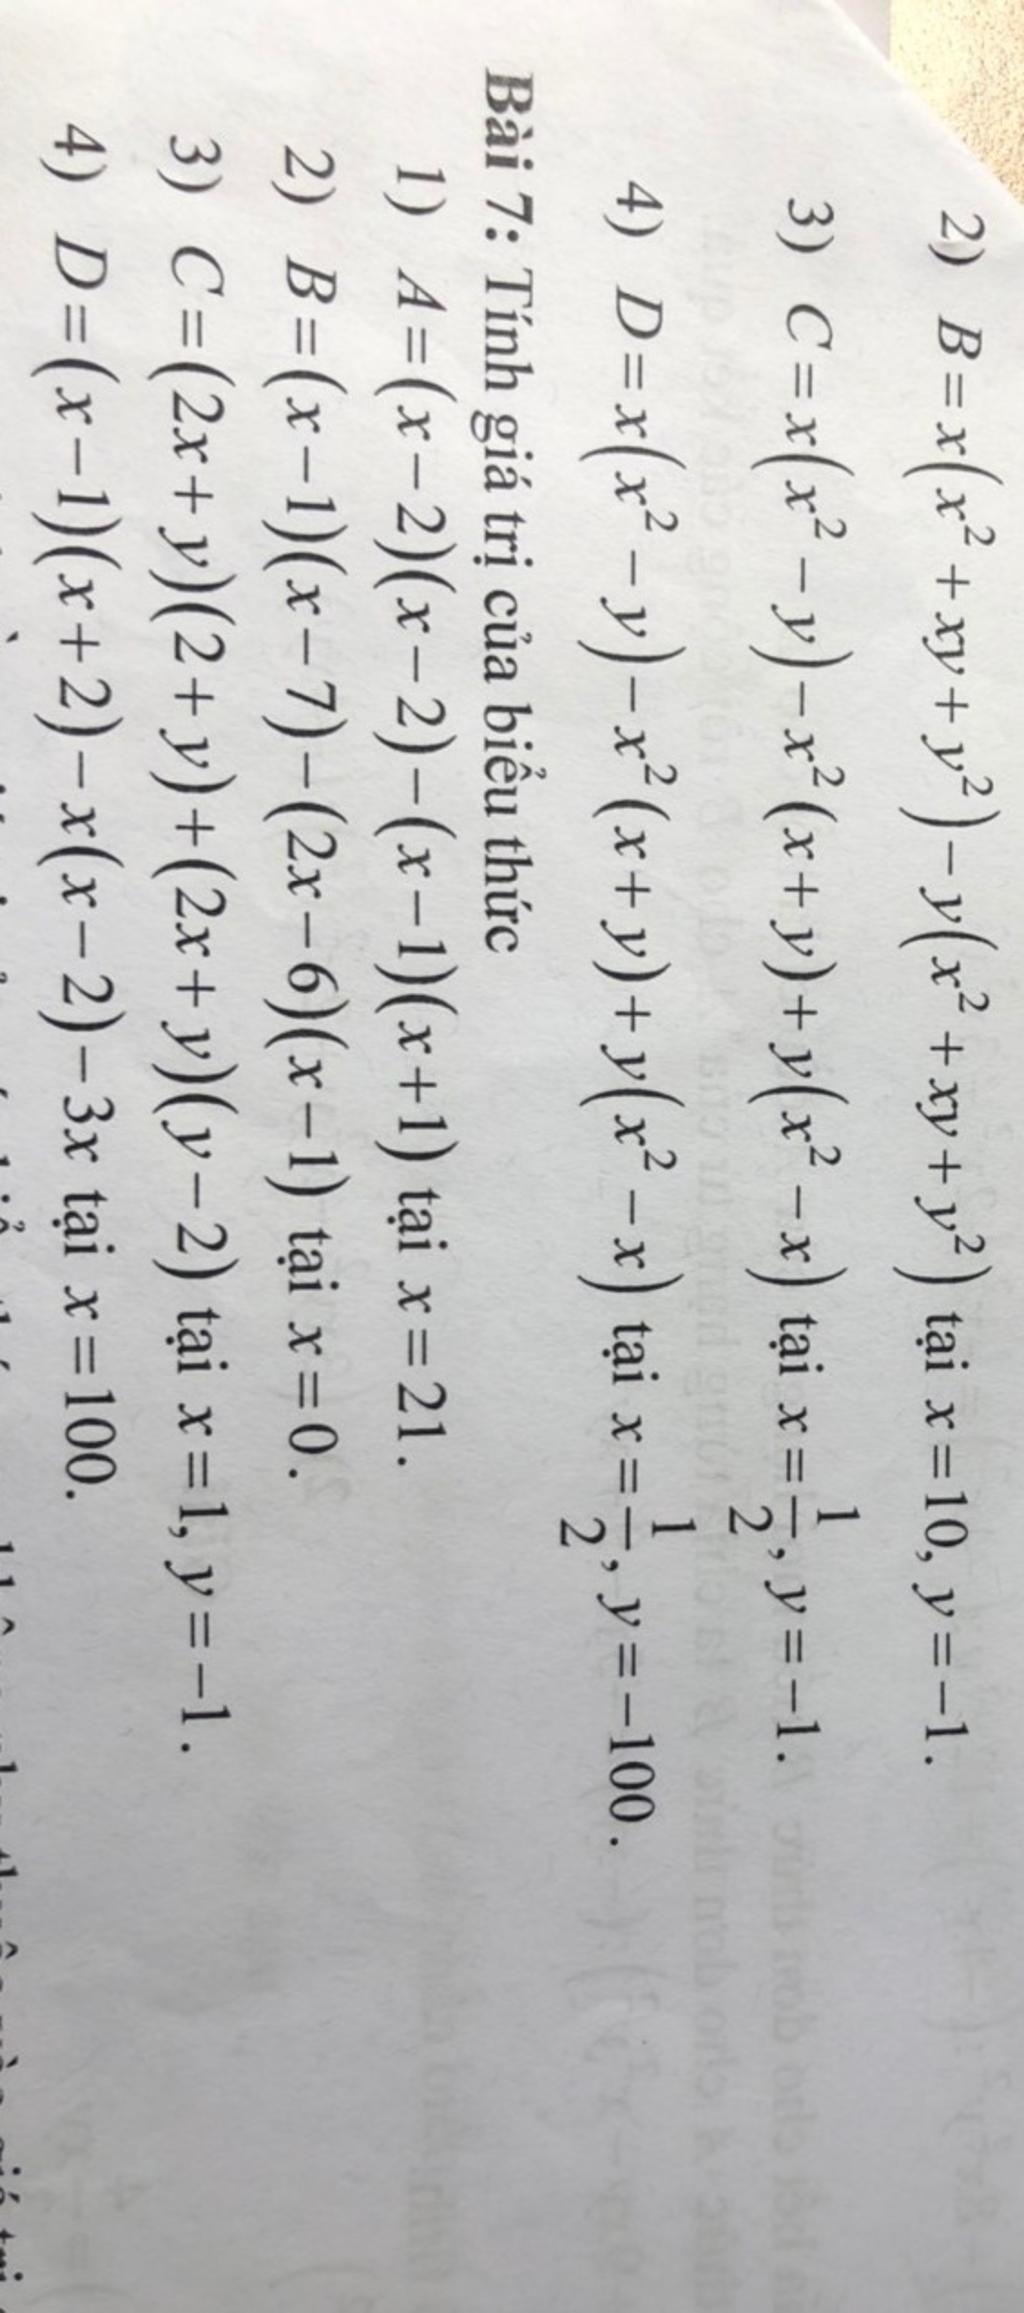 2) B = x(x² + xy + y²) − y(x² + xy + y²) tại x = 10, y = −1.
3) C = x(x² − y) − x²(x + y) + y(x² − x) tại x = 1/2, y = −1.
4) D = x(x² − y) − x²(x + y) + y(x² − x) tại x = 1/2, y = −100.
Bài 7: Tính giá trị của biểu thức
1) A = (x − 2)(x − 2) − (x − 1)(x + 1) tại x = 21.
2) B = (x − 1)(x − 7) − (2x − 6)(x − 1) tại x = 0.
3) C = (2x + y)(2 + y) + (2x + y)(y − 2) tại x = 1, y = −1.
4) D = (x − 1)(x + 2) − x(x − 2) − 3x tại x = 100.